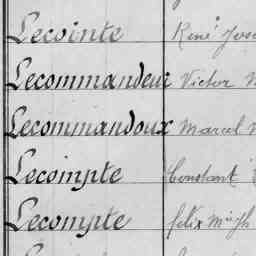 Lecointe René
Lecommandeur Victor
Lecommandoux Marcel
Lecompte Constant
Lecompte Félix